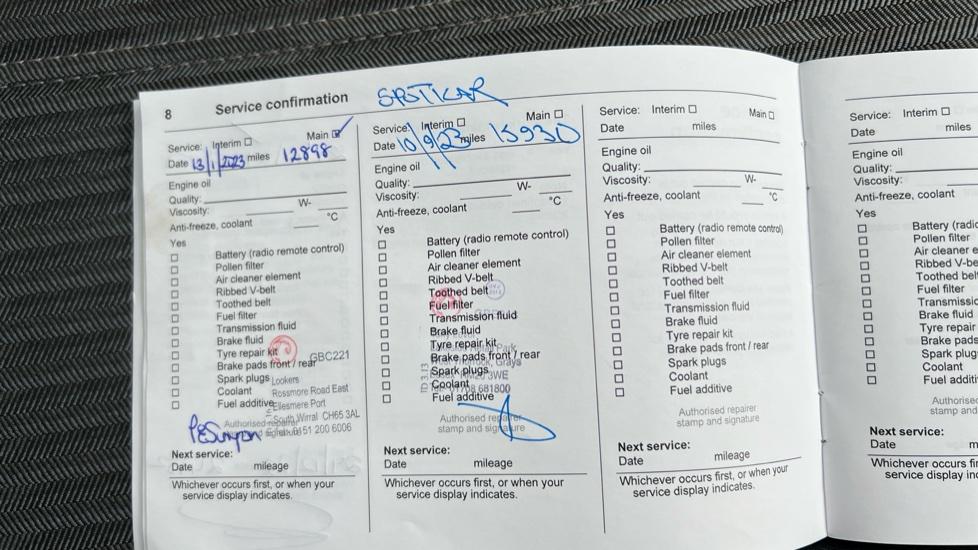 8 Service confirmation
Service: Interim ☐ Main ☑
Date 13/1/2023 miles 12898
Engine oil
Quality:
Viscosity: W-
Anti-freeze, coolant °C
Yes
☐ Battery (radio remote control)
☐ Pollen filter
☐ Air cleaner element
☐ Ribbed V-belt
☐ Toothed belt
☐ Fuel filter
☐ Transmission fluid
☐ Brake fluid
☐ Tyre repair kit
GBC221
☐ Brake pads front / rear
☐ Spark plugs
Lookers
☐ Coolant
Rossmore Road East
☐ Fuel additive
Ellesmere Port
South Wirral CH65 3AL
0151 200 6006
Authorised repairer
stamp and signature
Next service:
Date mileage
Whichever occurs first, or when your
service display indicates.
Service: Interim ☐ Main ☐
Date 10/9/23 miles 15930
Engine oil
Quality:
Viscosity: W-
Anti-freeze, coolant °C
Yes
☐ Battery (radio remote control)
☐ Pollen filter
☐ Air cleaner element
☐ Ribbed V-belt
☐ Toothed belt
☐ Fuel filter
☐ Transmission fluid
☐ Brake fluid
☐ Tyre repair kit
☐ Brake pads front / rear
☐ Spark plugs
☐ Coolant
681800
☐ Fuel additive
Authorised repairer
stamp and signature
Next service:
Date mileage
Whichever occurs first, or when your
service display indicates.
Service: Interim ☐ Main ☐
Date miles
Engine oil
Quality:
Viscosity: W-
Anti-freeze, coolant °C
Yes
☐ Battery (radio remote control)
☐ Pollen filter
☐ Air cleaner element
☐ Ribbed V-belt
☐ Toothed belt
☐ Fuel filter
☐ Transmission fluid
☐ Brake fluid
☐ Tyre repair kit
☐ Brake pads front / rear
☐ Spark plugs
☐ Coolant
☐ Fuel additive
Authorised repairer
stamp and signature
Next service:
Date mileage
Whichever occurs first, or when your
service display indicates.
Service: Interim ☐
Date miles
Engine oil
Quality:
Viscosity:
Anti-freeze, coolant
Yes
☐ Battery (radio
☐ Pollen filter
☐ Air cleaner e
☐ Ribbed V-be
☐ Toothed bel
☐ Fuel filter
☐ Transmissic
☐ Brake fluid
☐ Tyre repair
☐ Brake pads
☐ Spark plug
☐ Coolant
☐ Fuel additi
Authorised
stamp and
Next service:
Date m
Whichever occurs fir
service display in